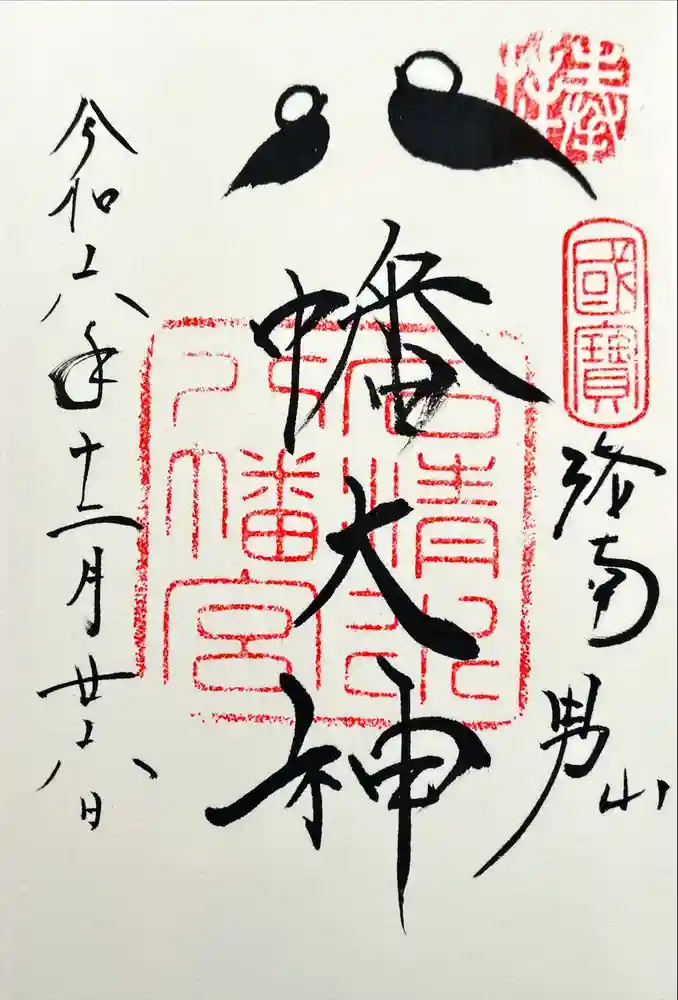 奉拝
國寶
洛南男山
八幡大神
石清水八幡宮
令和六年十二月廿六日